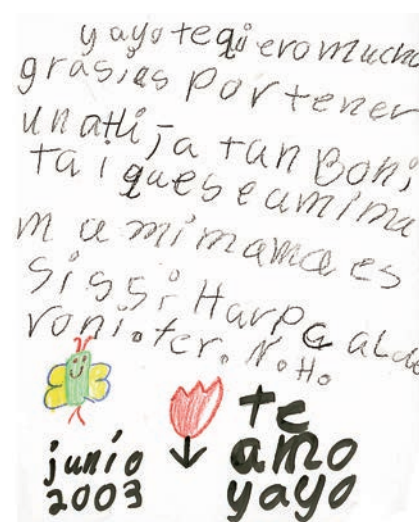 yayo tequiero mucho
grasias por tener
una Hija tan Boni
ta i que sea mi ma
ma mi mama es
Sissi Harp
te
amo
junio
2003
yayo